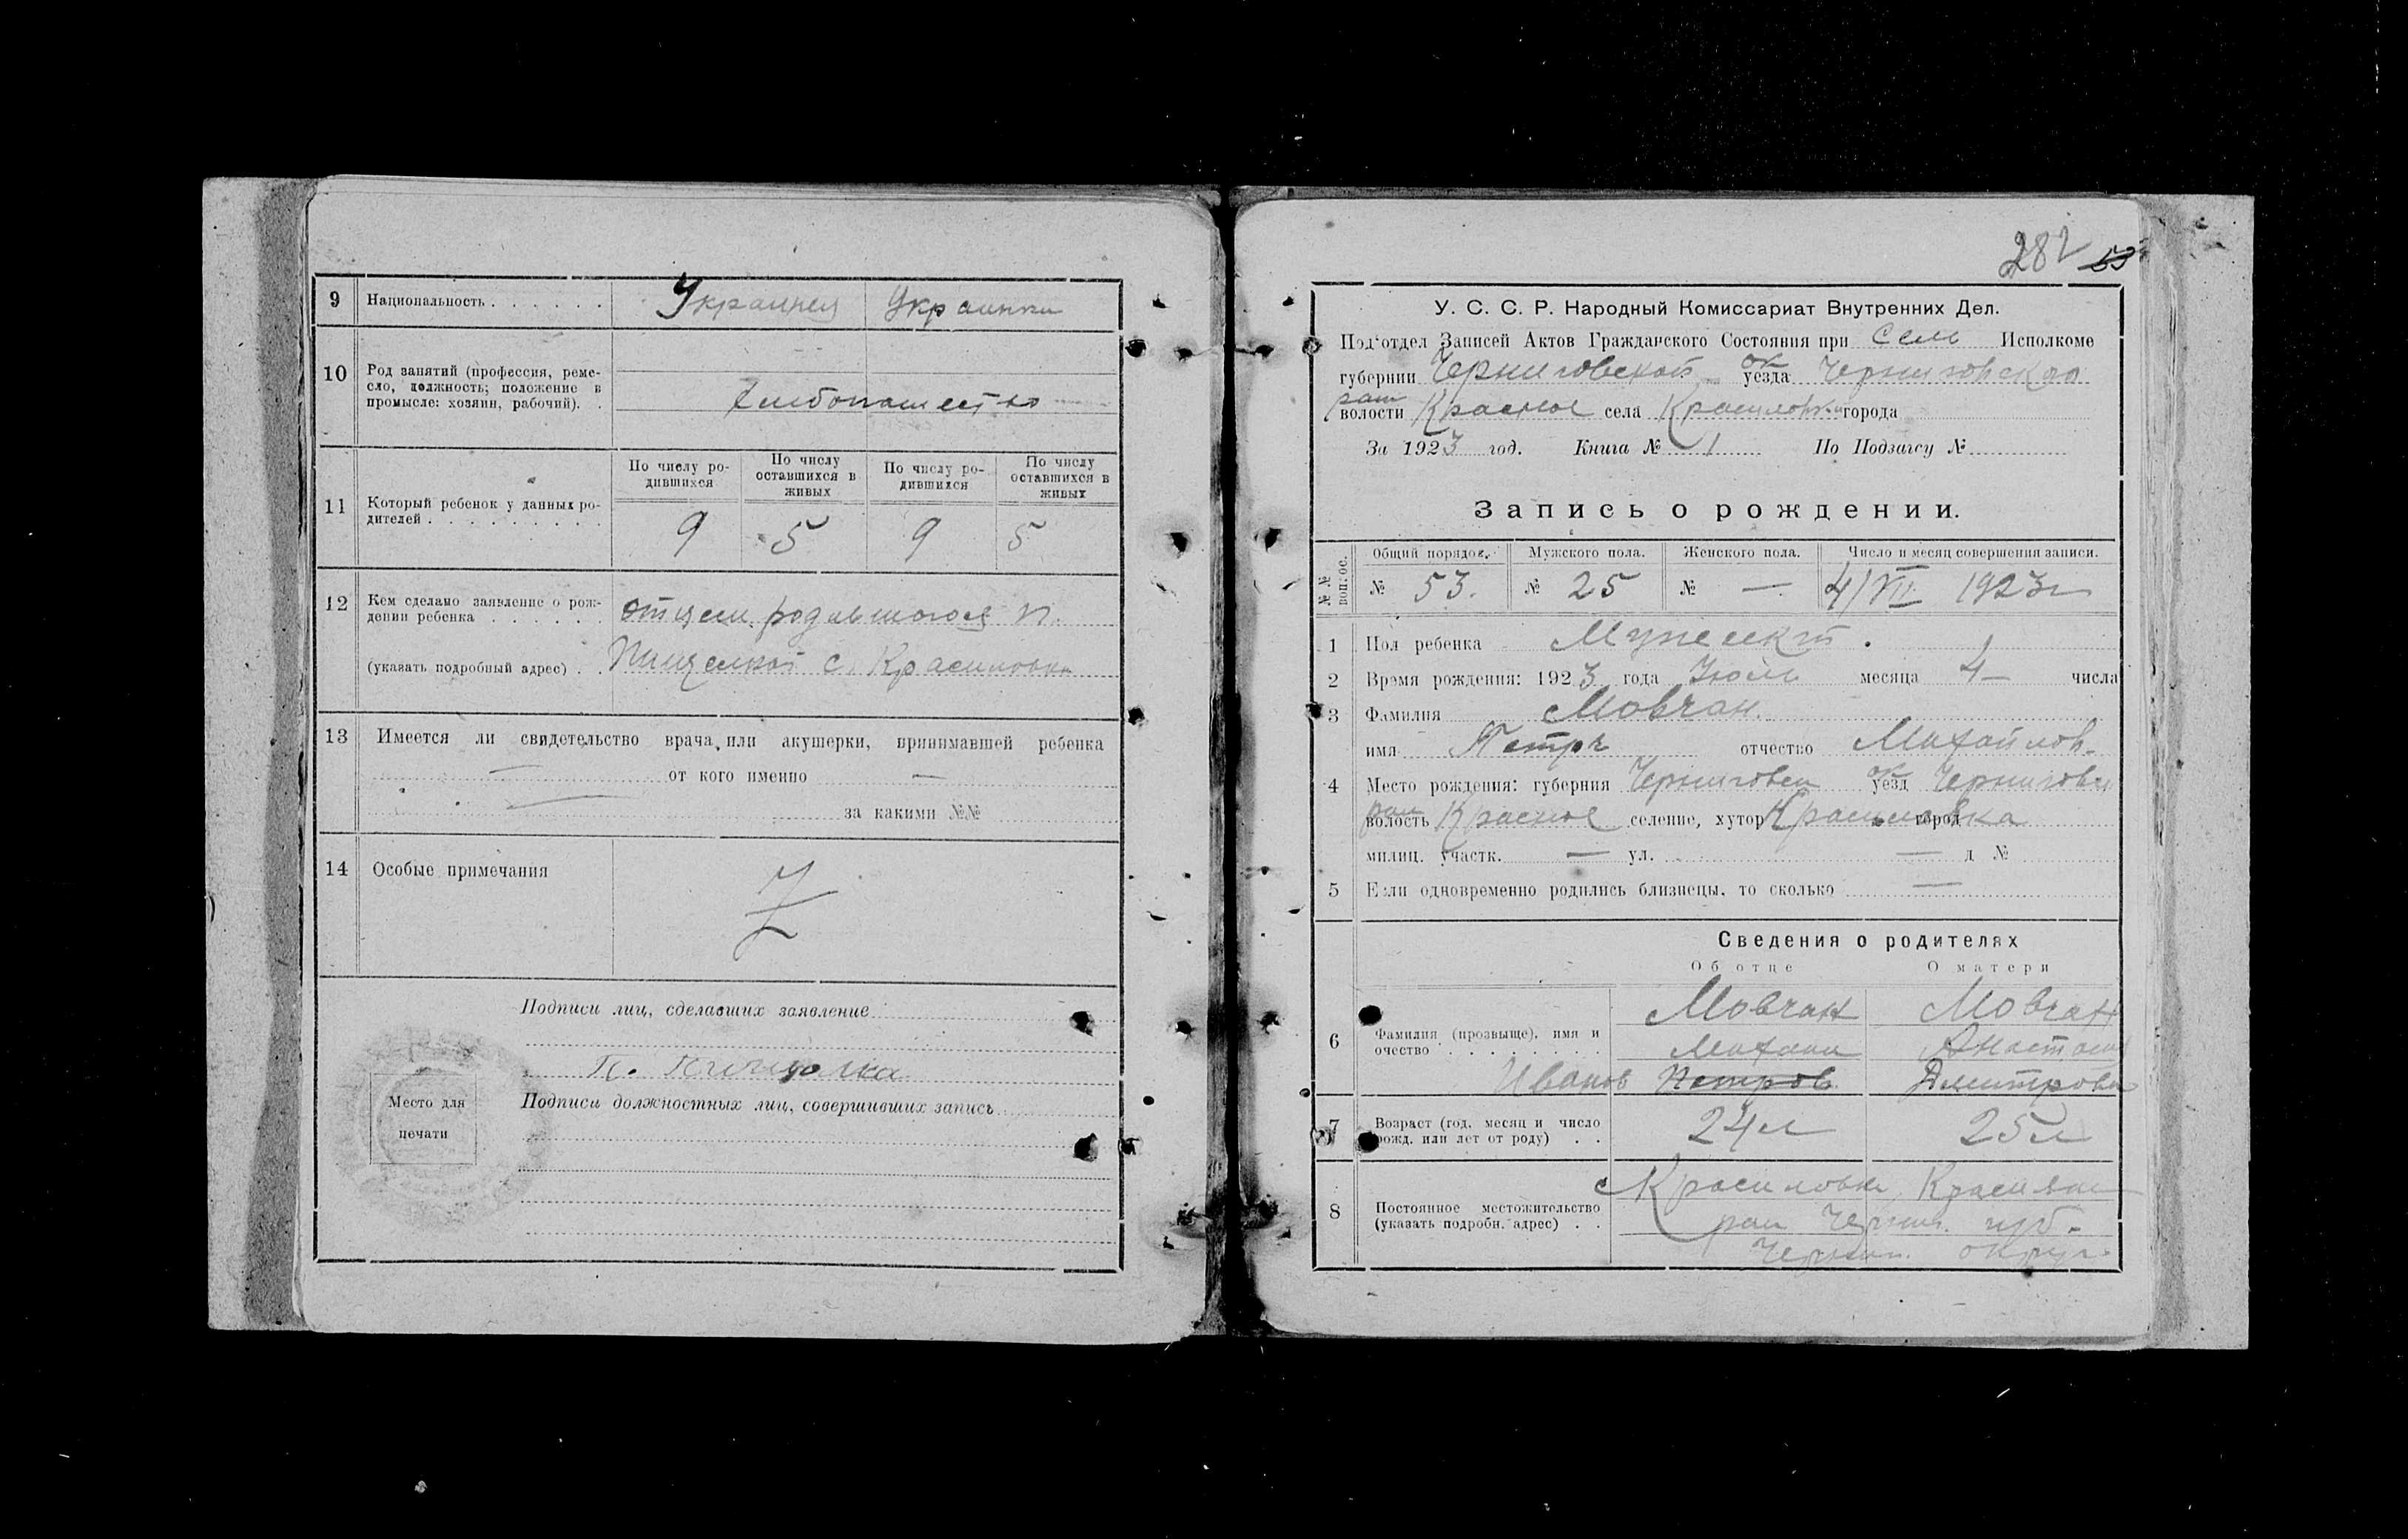 9 Национальность . . . . . . Украинец Украинка
10 Род занятий (профессия, реме-
сло, должность; положение в
промысле: хозяин, рабочий). .
Хлебопашество
По числу ро-
дившихся
По числу
оставшихся в
живых
По числу ро-
дившихся
По числу
оставшихся в
живых
11 Который ребенок у данных ро-
дителей . . . . . . . . . .
9 5 9 5
12 Кем сделано заявление о рож-
дении ребенка . . . . . . отцем родившогося П.
(указать подробный адрес) . . с. Красиловки
13 Имеется ли свидетельство врача, или акушерки, принимавшей ребенка
— от кого именно —
— за какими №№
14 Особые примечания
Z
Подписи лиц, сделавших заявление
П.
Место для
печати
Подписи должностных лиц, совершивших запись
282 53
У. С. С. Р. Народный Комиссариат Внутренних Дел.
Под'отдел Записей Актов Гражданского Состояния при Сель Исполкоме
губернии Черниговской ок уезда Черниговского
рай волости Красное села Красиловки города
За 1923 год. Книга № 1 По Подзагсу №
Запись о рождении.
№№ воп. ос.
Общий порядок. Мужского пола. Женского пола. Число и месяц совершения записи.
№ 53. № 25 № — 4/VII 1923г
1 Пол ребенка Мужеский.
2 Время рождения: 1923 года Июль месяца 4 — числа
3 Фамилия Мовчан
имя Петр отчество Михайлов.
4 Место рождения: губерния Черниговск ок уезд Черниговск
рай волость Красное селение, хутор Красиловка город
милиц. участк. — ул. — д №
5 Если одновременно родились близнецы, то сколько —
Сведения о родителях
Об отце О матери
Мовчан Мовчан
6 Фамилия (прозвыще), имя и
очество . . . . . . . .
Михаил Анастасия
Иванов Петров Дмитровна
7 Возраст (год, месяц и число
рожд. или лет от роду) . .
24 л 25 л
8 Постоянное местожительство
(указать подробн. адрес) . .
с Красиловка,
рай Черниг. губ.
Черниг. округ.